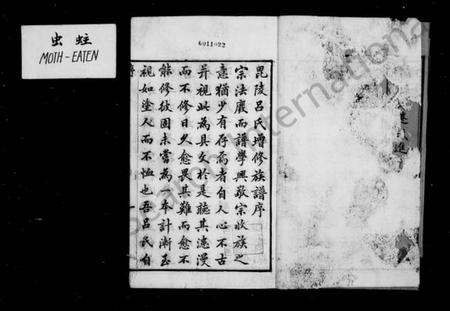 虫蛀
MOTH-EATEN
6011022
毘陵呂氏增修族譜序
宗法廢而譜學興敬宗收族之
意猶少有存焉者自人心不古
弁視此為具文於是聽其漶漫
而不修日久愈畏其難而愈不
能修彼固未嘗為本計漸至
視如塗人而不恤也吾呂氏自